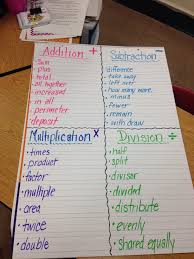 Addition +
• Sum
• plus
• total
• all together
• increased
• in all
• perimeter
• deposit
Subtraction -
• difference
• take away
• left over
• how many more
• minus
• fewer
• remain
• with draw
Multiplication x
• times
• product
• factor
• multiple
• area
• twice
• double
Division ÷
• half
• split
• divisor
• divided
• distribute
• evenly
• shared equally